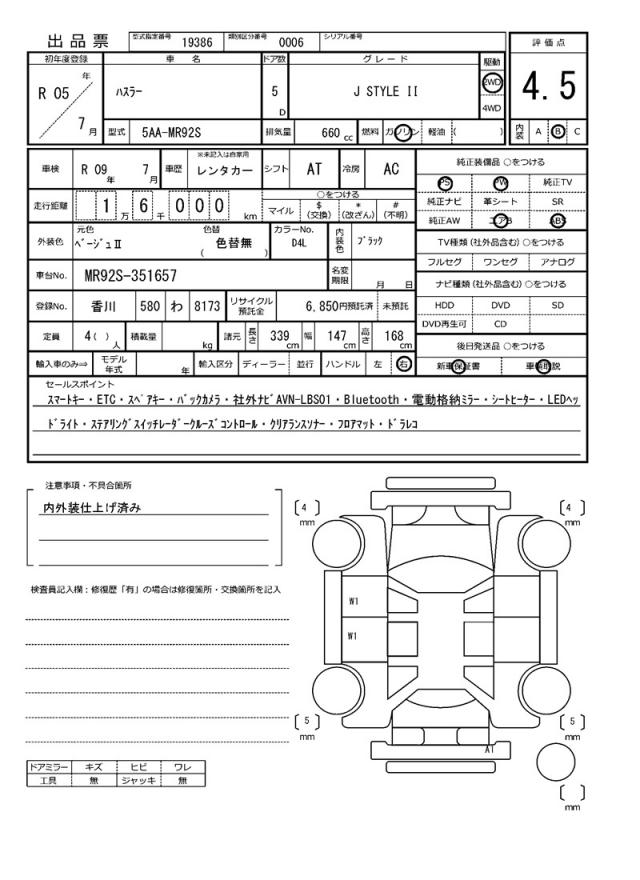 出品票 型式指定番号 19386 類別区分番号 0006 シリアル番号
評価点
4.5
内装 A B C
初年度登録 車名 ドア数 グレード 駆動
R 05 年 7 月 ﾊｽﾗｰ 5 D J STYLE II 2WD 4WD
型式 5AA-MR92S 排気量 660 cc 燃料 ガソリン 軽油 ( )
車検 R 09 年 7 月 車歴 ※未記入は自家用 レンタカー シフト AT 冷房 AC
走行距離 1 万 6 千 0 0 0 km ○をつける マイル $ (交換) * (改ざん) # (不明)
外装色 元色 ﾍﾞｰｼﾞｭⅡ 色替 ( 色替無 ) カラーNo. D4L 内装色 ﾌﾞﾗｯｸ
車台No. MR92S-351657 名変期限 月 日
登録No. 香川 580 わ 8173 リサイクル預託金 6,850円預託済 未預託
定員 4( ) 人 積載量 kg 諸元 長さ 339 cm 幅 147 cm 高さ 168 cm
輸入車のみ⇒ モデル年式 年 輸入区分 ディーラー 並行 ハンドル 左 右
純正装備品 ○をつける
PS PW 純正TV
純正ナビ 革シート SR
純正AW エアB ABS
TV種類 (社外品含む) ○をつける
フルセグ ワンセグ アナログ
ナビ種類 (社外品含む) ○をつける
HDD DVD SD
DVD再生可 CD
後日発送品 ○をつける
新車保証書 車輌取説
セールスポイント
ｽﾏｰﾄｷｰ・ETC・ｽﾍﾟｱｷｰ・ﾊﾞｯｸｶﾒﾗ・社外ﾅﾋﾞAVN-LBS01・Bluetooth・電動格納ﾐﾗｰ・ｼｰﾄﾋｰﾀｰ・LEDﾍｯ
ﾄﾞﾗｲﾄ・ｽﾃｱﾘﾝｸﾞｽｲｯﾁﾚｰﾀﾞｰｸﾙｰｽﾞｺﾝﾄﾛｰﾙ・ｸﾘｱﾗﾝｽｿﾅｰ・ﾌﾛｱﾏｯﾄ・ﾄﾞﾗﾚｺ
注意事項・不具合箇所
内外装仕上げ済み
検査員記入欄：修復歴「有」の場合は修復箇所・交換箇所を記入
ドアミラー キズ ヒビ ワレ
工具 無 ジャッキ 無
[ 4 ] mm
[ 4 ] mm
W1
W1
[ 5 ] mm
[ 5 ] mm
A1
[ ] mm